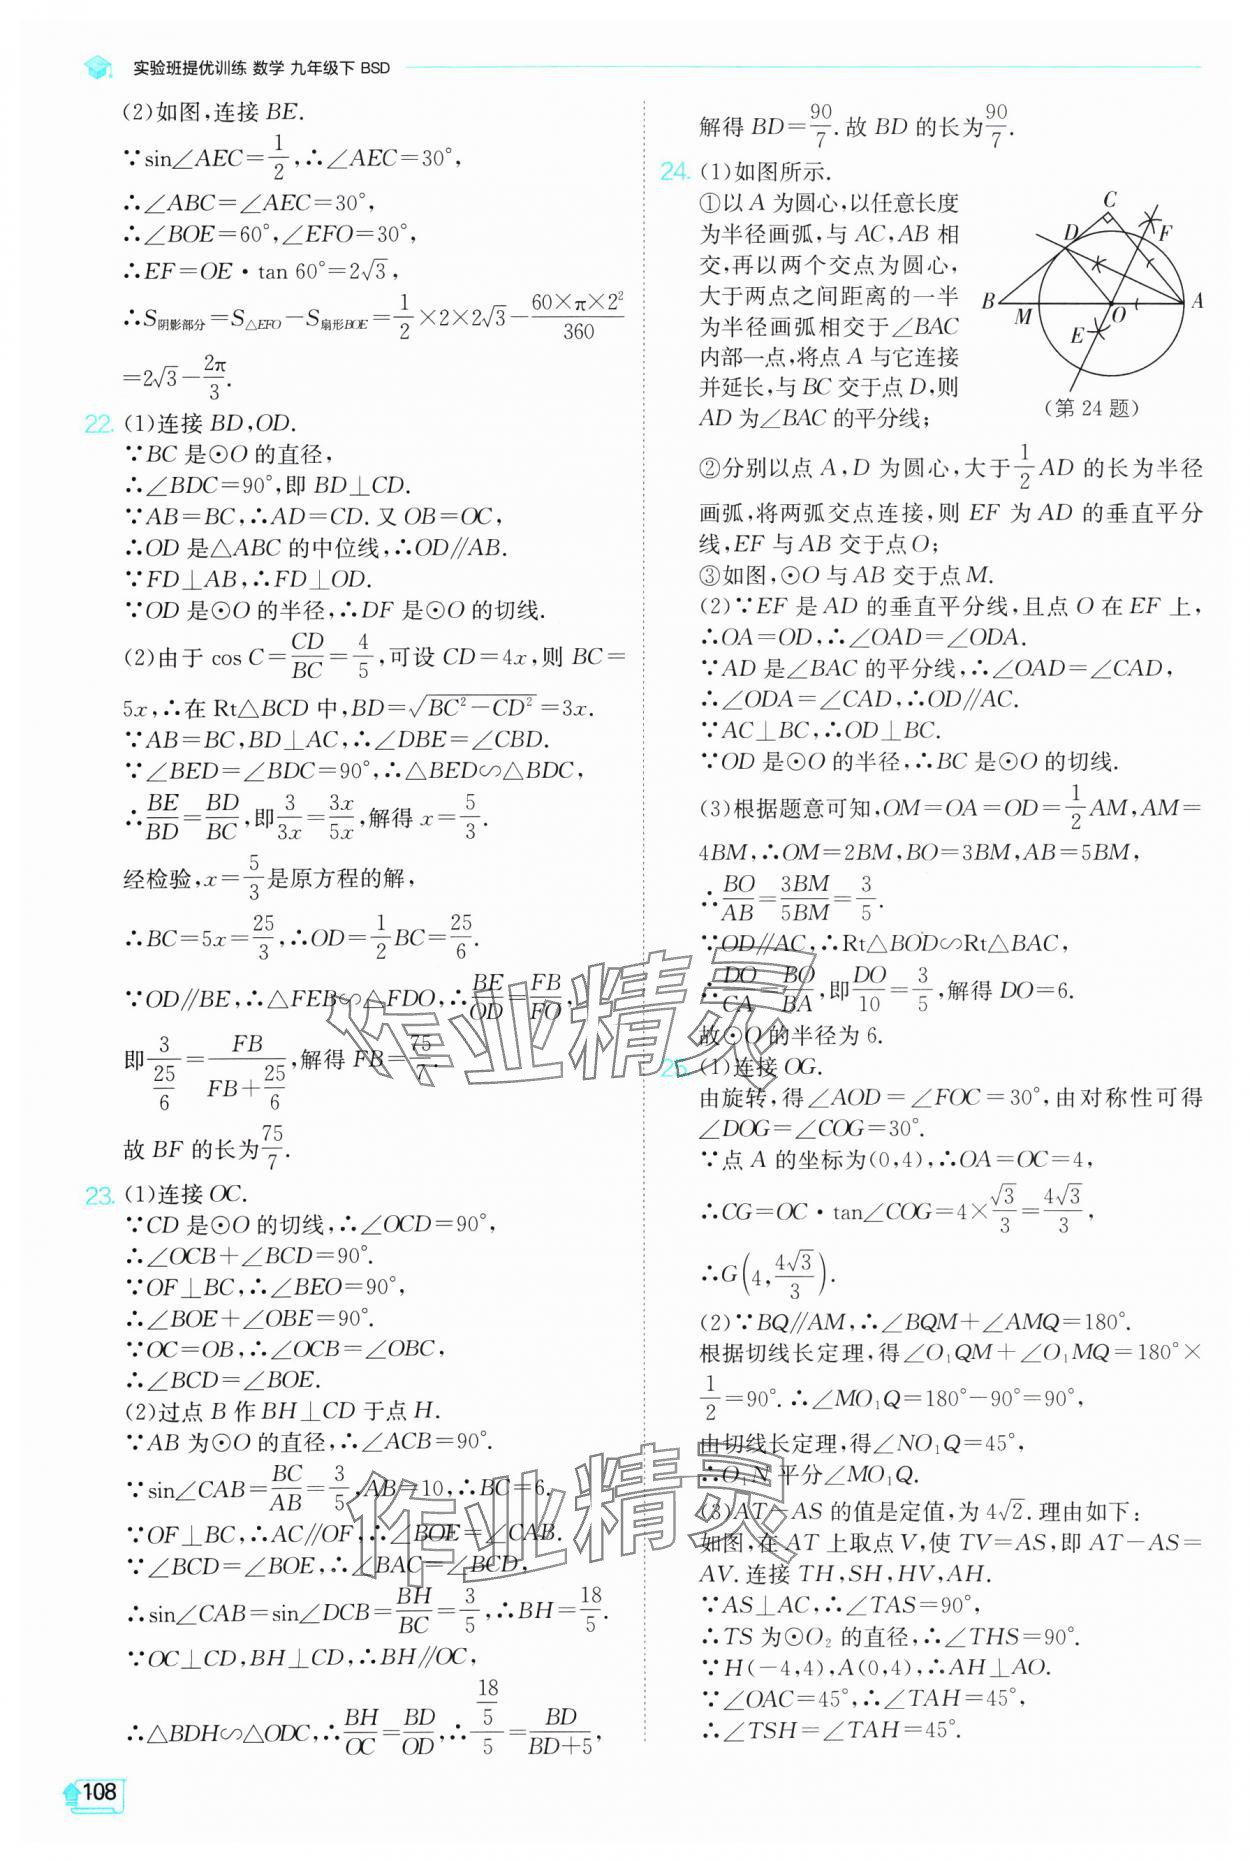 实验班提优训练 数学 九年级下 BSD
(2)如图,连接 BE.
∵sin∠AEC=1/2,∴∠AEC=30°,
∴∠ABC=∠AEC=30°,
∴∠BOE=60°,∠EFO=30°,
∴EF=OE·tan 60°=2√3,
∴S阴影部分=S△EFO-S扇形BOE=1/2×2×2√3-(60×π×2²)/360
=2√3-2π/3.
22. (1)连接 BD,OD.
∵BC 是⊙O 的直径,
∴∠BDC=90°,即 BD⊥CD.
∵AB=BC,∴AD=CD. 又 OB=OC,
∴OD 是△ABC 的中位线,∴OD∥AB.
∵FD⊥AB,∴FD⊥OD.
∵OD 是⊙O 的半径,∴DF 是⊙O 的切线.
(2)由于 cos C=CD/BC=4/5,可设 CD=4x,则 BC=
5x,∴在 Rt△BCD 中,BD=√(BC²-CD²)=3x.
∵AB=BC,BD⊥AC,∴∠DBE=∠CBD.
∵∠BED=∠BDC=90°,∴△BED∽△BDC,
∴BE/BD=BD/BC,即3/3x=3x/5x,解得 x=5/3.
经检验,x=5/3是原方程的解,
∴BC=5x=25/3,∴OD=1/2BC=25/6.
∵OD∥BE,∴△FEB∽△FDO,∴BE/OD=FB/FO,
即3/(25/6)=FB/(FB+25/6),解得 FB=75/7.
故 BF 的长为75/7.
23. (1)连接 OC.
∵CD 是⊙O 的切线,∴∠OCD=90°,
∴∠OCB+∠BCD=90°.
∵OF⊥BC,∴∠BEO=90°,
∴∠BOE+∠OBE=90°.
∵OC=OB,∴∠OCB=∠OBC,
∴∠BCD=∠BOE.
(2)过点 B 作 BH⊥CD 于点 H.
∵AB 为⊙O 的直径,∴∠ACB=90°.
∵sin∠CAB=BC/AB=3/5,AB=10,∴BC=6.
∵OF⊥BC,∴AC∥OF,∴∠BOE=∠CAB.
∵∠BCD=∠BOE,∴∠BAC=∠BCD,
∴sin∠CAB=sin∠DCB=BH/BC=3/5,∴BH=18/5.
∵OC⊥CD,BH⊥CD,∴BH∥OC,
∴△BDH∽△ODC,∴BH/OC=BD/OD,∴(18/5)/5=BD/(BD+5),
解得 BD=90/7. 故 BD 的长为90/7.
24. (1)如图所示.
①以 A 为圆心,以任意长度
为半径画弧,与 AC,AB 相
交,再以两个交点为圆心,
大于两点之间距离的一半
为半径画弧相交于∠BAC
内部一点,将点 A 与它连接
并延长,与 BC 交于点 D,则
AD 为∠BAC 的平分线;
C
D
F
B
M
O
A
E
(第 24 题)
②分别以点 A,D 为圆心,大于1/2AD 的长为半径
画弧,将两弧交点连接,则 EF 为 AD 的垂直平分
线,EF 与 AB 交于点 O;
③如图,⊙O 与 AB 交于点 M.
(2)∵EF 是 AD 的垂直平分线,且点 O 在 EF 上,
∴OA=OD,∴∠OAD=∠ODA.
∵AD 是∠BAC 的平分线,∴∠OAD=∠CAD,
∴∠ODA=∠CAD,∴OD∥AC.
∵AC⊥BC,∴OD⊥BC.
∵OD 是⊙O 的半径,∴BC 是⊙O 的切线.
(3)根据题意可知,OM=OA=OD=1/2AM,AM=
4BM,∴OM=2BM,BO=3BM,AB=5BM,
∴BO/AB=3BM/5BM=3/5.
∵OD∥AC,∴Rt△BOD∽Rt△BAC,
∴DO/CA=BO/BA,即DO/10=3/5,解得 DO=6.
故⊙O 的半径为 6.
25. (1)连接 OG.
由旋转,得∠AOD=∠FOC=30°,由对称性可得
∠DOG=∠COG=30°.
∵点 A 的坐标为(0,4),∴OA=OC=4,
∴CG=OC·tan∠COG=4×√3/3=4√3/3,
∴G(4,4√3/3).
(2)∵BQ∥AM,∴∠BQM+∠AMQ=180°.
根据切线长定理,得∠O₁QM+∠O₁MQ=180°×
1/2=90°. ∴∠MO₁Q=180°-90°=90°,
由切线长定理,得∠NO₁Q=45°,
∴O₁N 平分∠MO₁Q.
(3)AT-AS 的值是定值,为 4√2. 理由如下:
如图,在 AT 上取点 V,使 TV=AS,即 AT-AS=
AV. 连接 TH,SH,HV,AH.
∵AS⊥AC,∴∠TAS=90°,
∴TS 为⊙O₂ 的直径,∴∠THS=90°.
∵H(-4,4),A(0,4),∴AH⊥AO.
∵∠OAC=45°,∴∠TAH=45°,
∴∠TSH=∠TAH=45°.
108
作业精灵
作业精灵